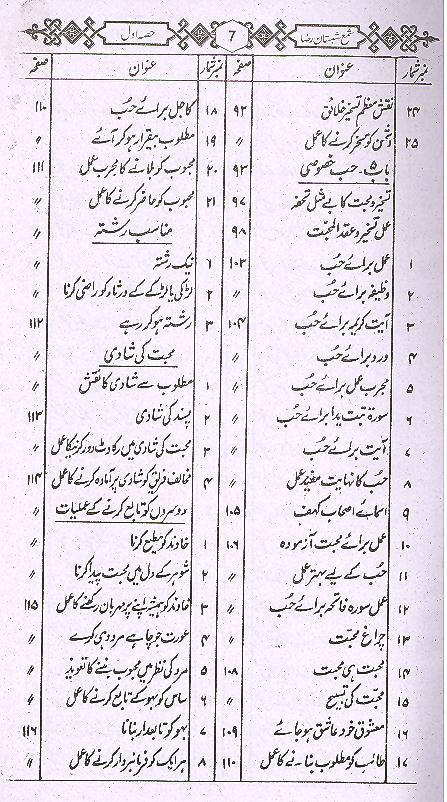 شمع شبستان رضا 7 حصہ اول
نمبر شمار عنوان صفحہ
۲۴ نقش معظم تسخیر خلائق ۹۲
۲۵ دشمن کو مسخر کرنے کا عمل 〃
باب ۵۔ حب خصوصی ۹۳
تسخیر و محبت کا بے مثل تحفہ ۹۷
عمل تسخیر و عقد المحبت ۹۸
۱ عمل برائے حُب ۱۰۳
۲ وظیفہ برائے حُب 〃
۳ آیت کریمہ برائے حُب ۱۰۴
۴ ورد برائے حُب 〃
۵ مجرب عمل برائے حُب 〃
۶ سورۃ تبت یدا برائے حُب 〃
۷ آیت برائے حُب 〃
۸ حُب کا نہایت مفید عمل 〃
۹ اسمائے اصحاب کہف ۱۰۵
۱۰ عمل برائے محبت آزمودہ ۱۰۶
۱۱ حُب کے لیے بہتر عمل 〃
۱۲ عمل سورہ فاتحہ برائے حُب 〃
۱۳ چراغ محبت 〃
۱۴ محبت ہی محبت ۱۰۸
۱۵ محبت کی تسبیح 〃
۱۶ معشوق خود عاشق ہو جائے ۱۰۹
۱۷ طالب کو مطلوب بنانے کا عمل ۱۱۰
نمبر شمار عنوان صفحہ
۱۸ کاجل برائے حُب ۱۱۰
۱۹ مطلوب بیقرار ہو کر آئے 〃
۲۰ محبوب کو بلانے کا مجرب عمل ۱۱۱
۲۱ محبوب کو حاضر کرنے کا عمل 〃
مناسب رشتہ 〃
۱ نیک رشتہ 〃
۲ لڑکی یا لڑکے کے ورثاء کو راضی کرنا 〃
۳ رشتہ ہو کر رہے ۱۱۲
محبت کی شادی 〃
۱ مطلوب سے شادی کا نقش 〃
۲ پسند کی شادی ۱۱۳
۳ محبت کی شادی میں رکاوٹ دور کرنیکا عمل 〃
۴ مخالف فریق کو شادی پر آمادہ کرنے کا عمل ۱۱۴
دوسروں کو تابع کرنے کے عملیات 〃
۱ خاوند کو مطیع کرنا 〃
۲ شوہر کے دل میں محبت پیدا کرنا 〃
۳ خاوند کو ہمیشہ اپنے پر مہربان رکھنے کا عمل ۱۱۵
۴ عورت جو چاہے مرد وہی کرے 〃
۵ مرد کی نظر میں محبوب بننے کا تعویذ 〃
۶ ساس کو بہو کے تابع کرنے کا عمل 〃
۷ بہو کو تابعدار بنانا ۱۱۶
۸ ہر ایک کو فرمانبردار کرنے کا عمل 〃